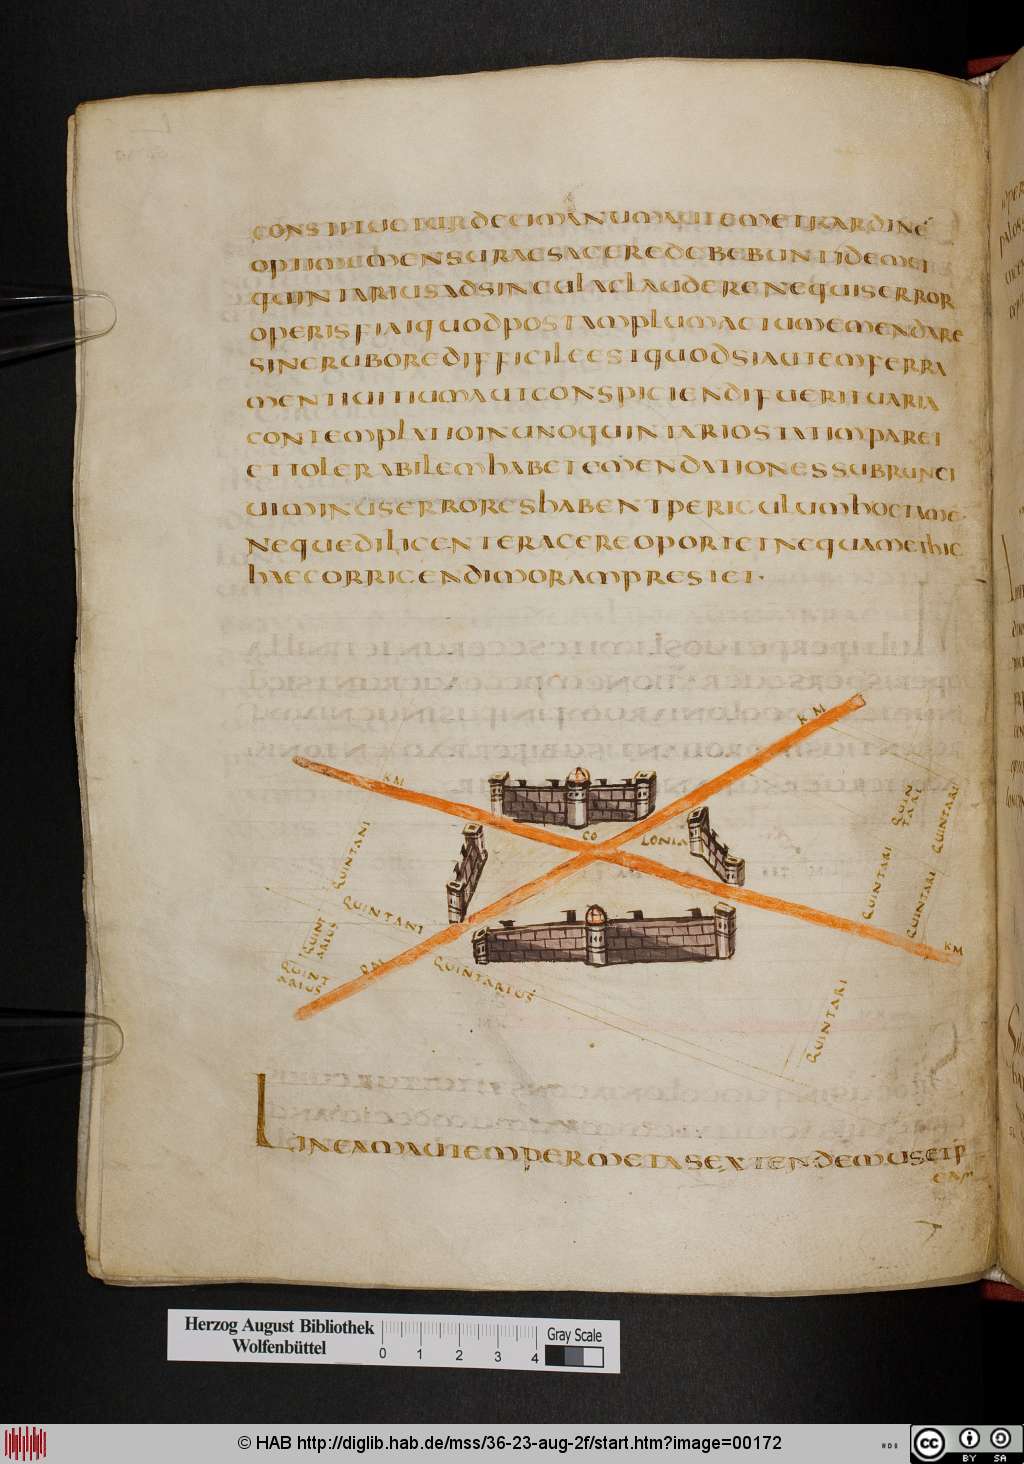 CONSTITUETUR DECIMANUM AUTEM ET KARDINE
OPTIME MENSURAS ACERE DEBEBUNT IDEM ET
QUINTARIUS AD SINGULA CLAUDERE NE QUIS ERROR
OPERIS FIAT QUOD POST AMPLUM ACTUM EMENDARE
SINE RUBORE DIFFICILE EST QUOD SI AUT EM FERRA
MENTI UITIUM AUT CONSPICIENDI FUERIT UARIA
CONTEMPLATIO IN UNO QUINTARIO STATIM PARET
ET TOLERABILEM HABET EMENDATIONES SUBRUNCI
UI MINUS ERRORES HABENT PERICULUM HOC TAME
NEQUE DILIGENTER AGERE OPORTET NE QUAM ET HIC
HAEC CORRIGENDI MORAM PRESTET·
KM
KM
CO
LONIA
QUINTANI
QUINTANI
QUINT
ARIUS
QUINT
ARIUS
QUINTARIUS
QUIN
TARI
QUINTARI
QUINTARI
QUINTARI
KM
QUINTARI
LINEAM AUTEM PER METAS EXTENDEMUS ET P
Herzog August Bibliothek
Wolfenbüttel
0 1 2 3 4
Gray Scale
© HAB http://diglib.hab.de/mss/36-23-aug-2f/start.htm?image=00172
cc BY SA